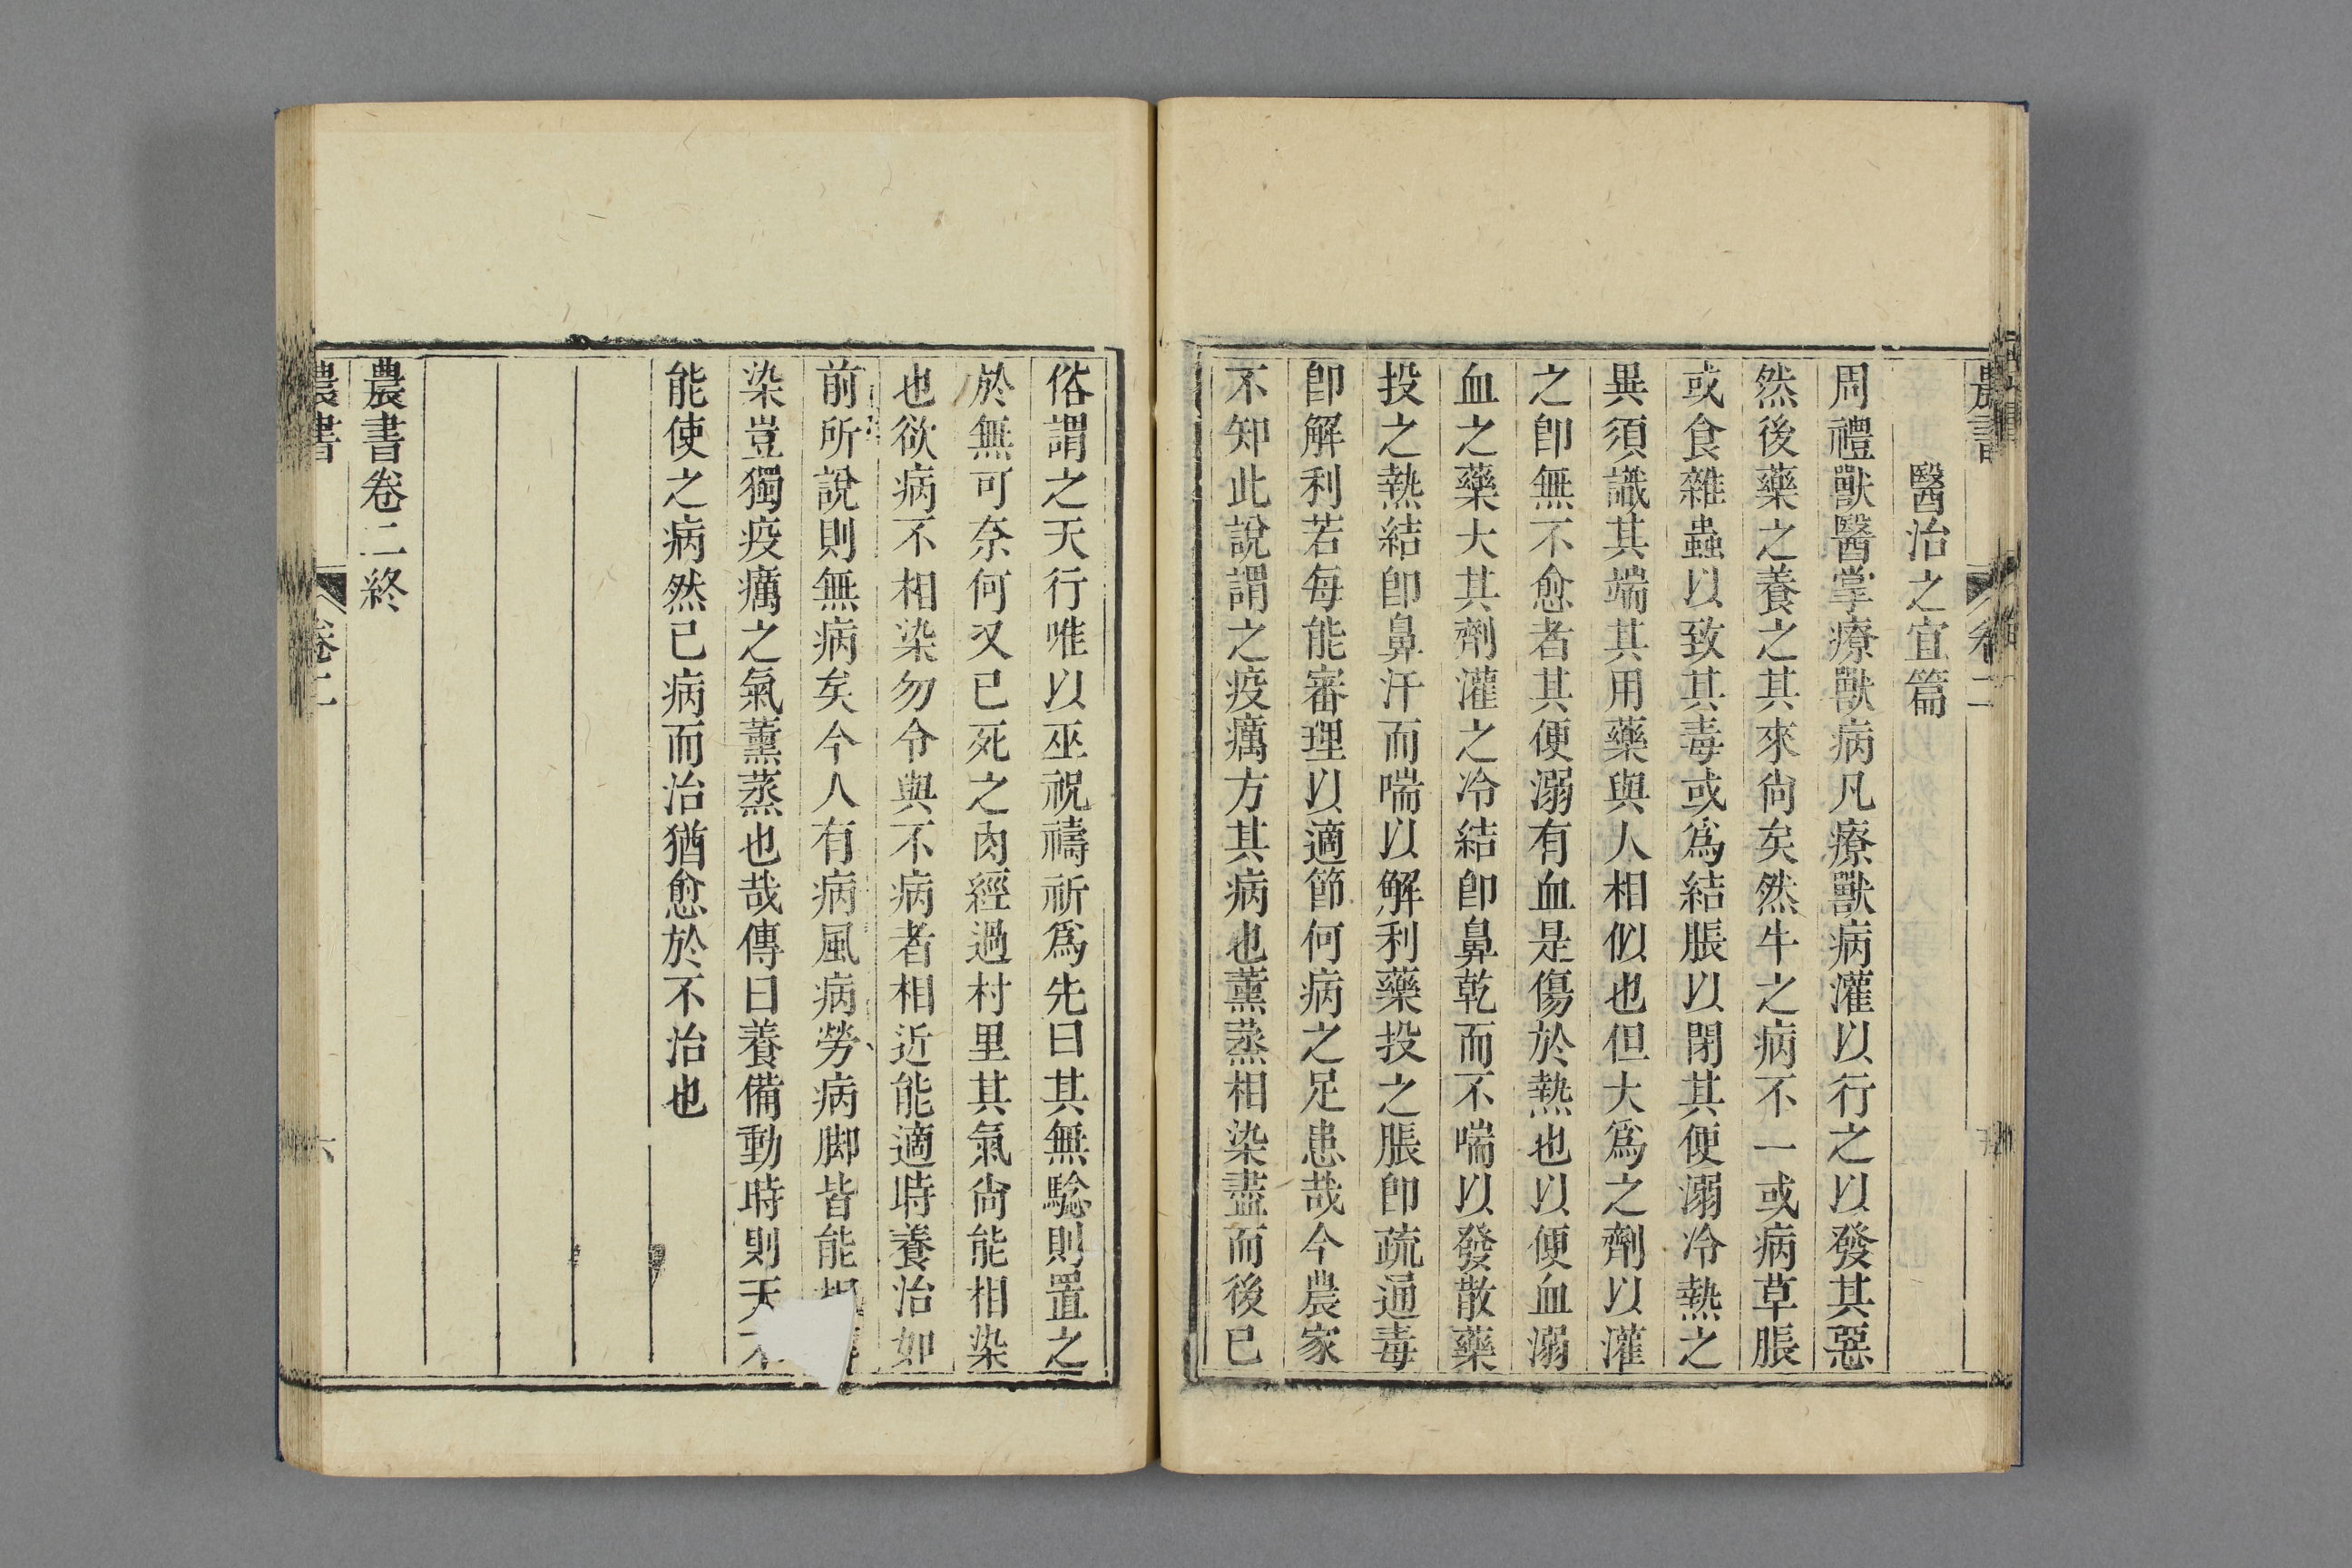 農書 卷二
醫治之宜篇
周禮獸醫掌療獸病凡療獸病灌以行之以發其惡
然後藥之養之其來尙矣然牛之病不一或病草脹
或食雜蟲以致其毒或爲結脹以閉其便溺冷熱之
異須識其端其用藥與人相似也但大爲之劑以灌
之卽無不愈者其便溺有血是傷於熱也以便血溺
血之藥大其劑灌之冷結卽鼻乾而不喘以發散藥
投之熱結卽鼻汗而喘以解利藥投之脹卽疏通毒
卽解利若每能審理以適節何病之足患哉今農家
不知此說謂之疫癘方其病也薰蒸相染盡而後已
俗謂之天行唯以巫祝禱祈爲先曰其無驗則置之
於無可奈何又已死之肉經過村里其氣尙能相染
也欲病不相染勿令與不病者相近能適時養治如
前所說則無病矣今人有病風病勞病脚皆能相
染豈獨疫癘之氣薰蒸也哉傳曰養備動時則天不
能使之病然已病而治猶愈於不治也
農書卷二終
農書 卷二 六